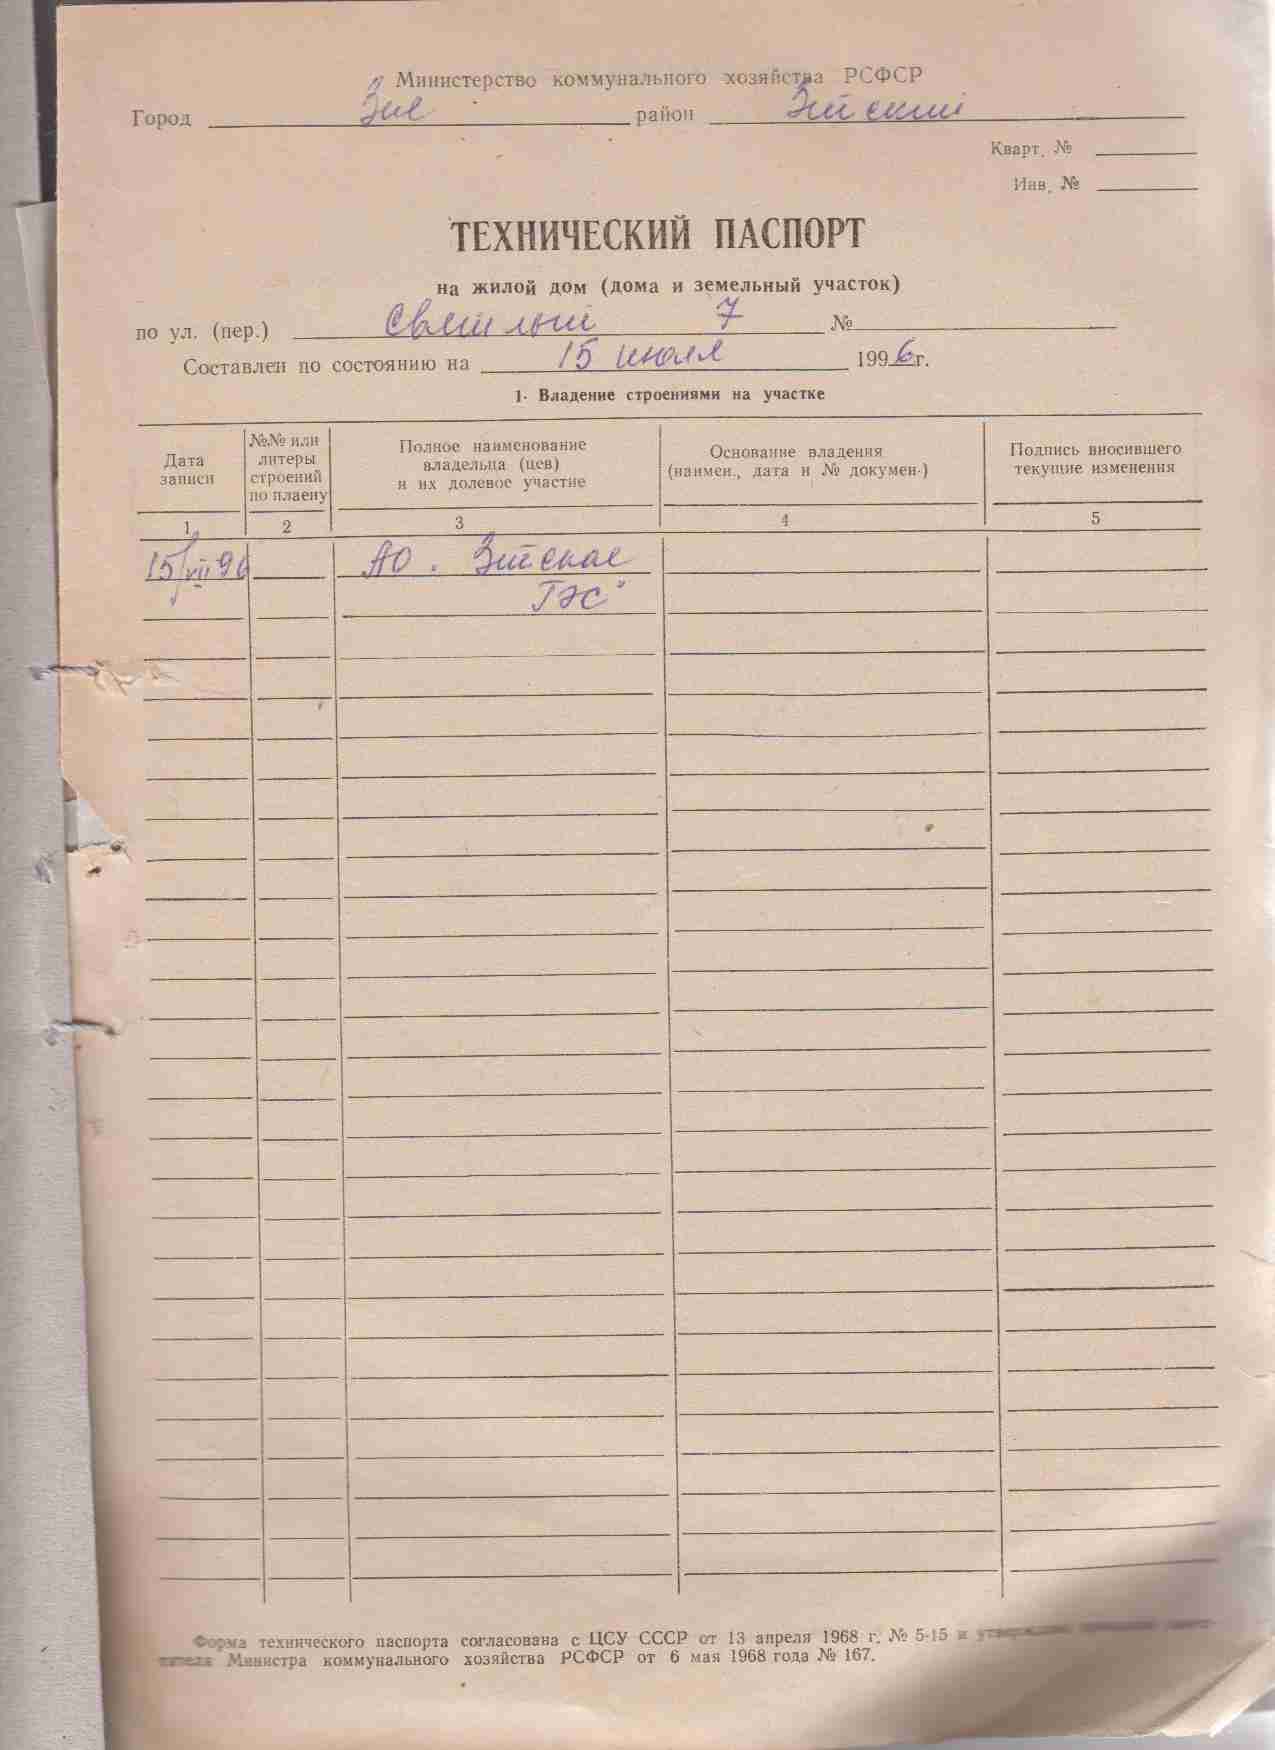 Министерство коммунального хозяйства РСФСР
Город Зея район Зейский
Кварт. №
Инв. №
ТЕХНИЧЕСКИЙ ПАСПОРТ
на жилой дом (дома и земельный участок)
по ул. (пер.) Светлый 7 №
Составлен по состоянию на 15 июля 1996 г.
1. Владение строениями на участке
Дата записи
№№ или литеры строений по плаену
Полное наименование владельца (цев) и их долевое участие
Основание владения (наимен., дата и № докумен.)
Подпись вносившего текущие изменения
1 2 3 4 5
15/VII 96 АО „Зейская
ГЭС"
Форма технического паспорта согласована с ЦСУ СССР от 13 апреля 1968 г. № 5-15 и
Министра коммунального хозяйства РСФСР от 6 мая 1968 года № 167.